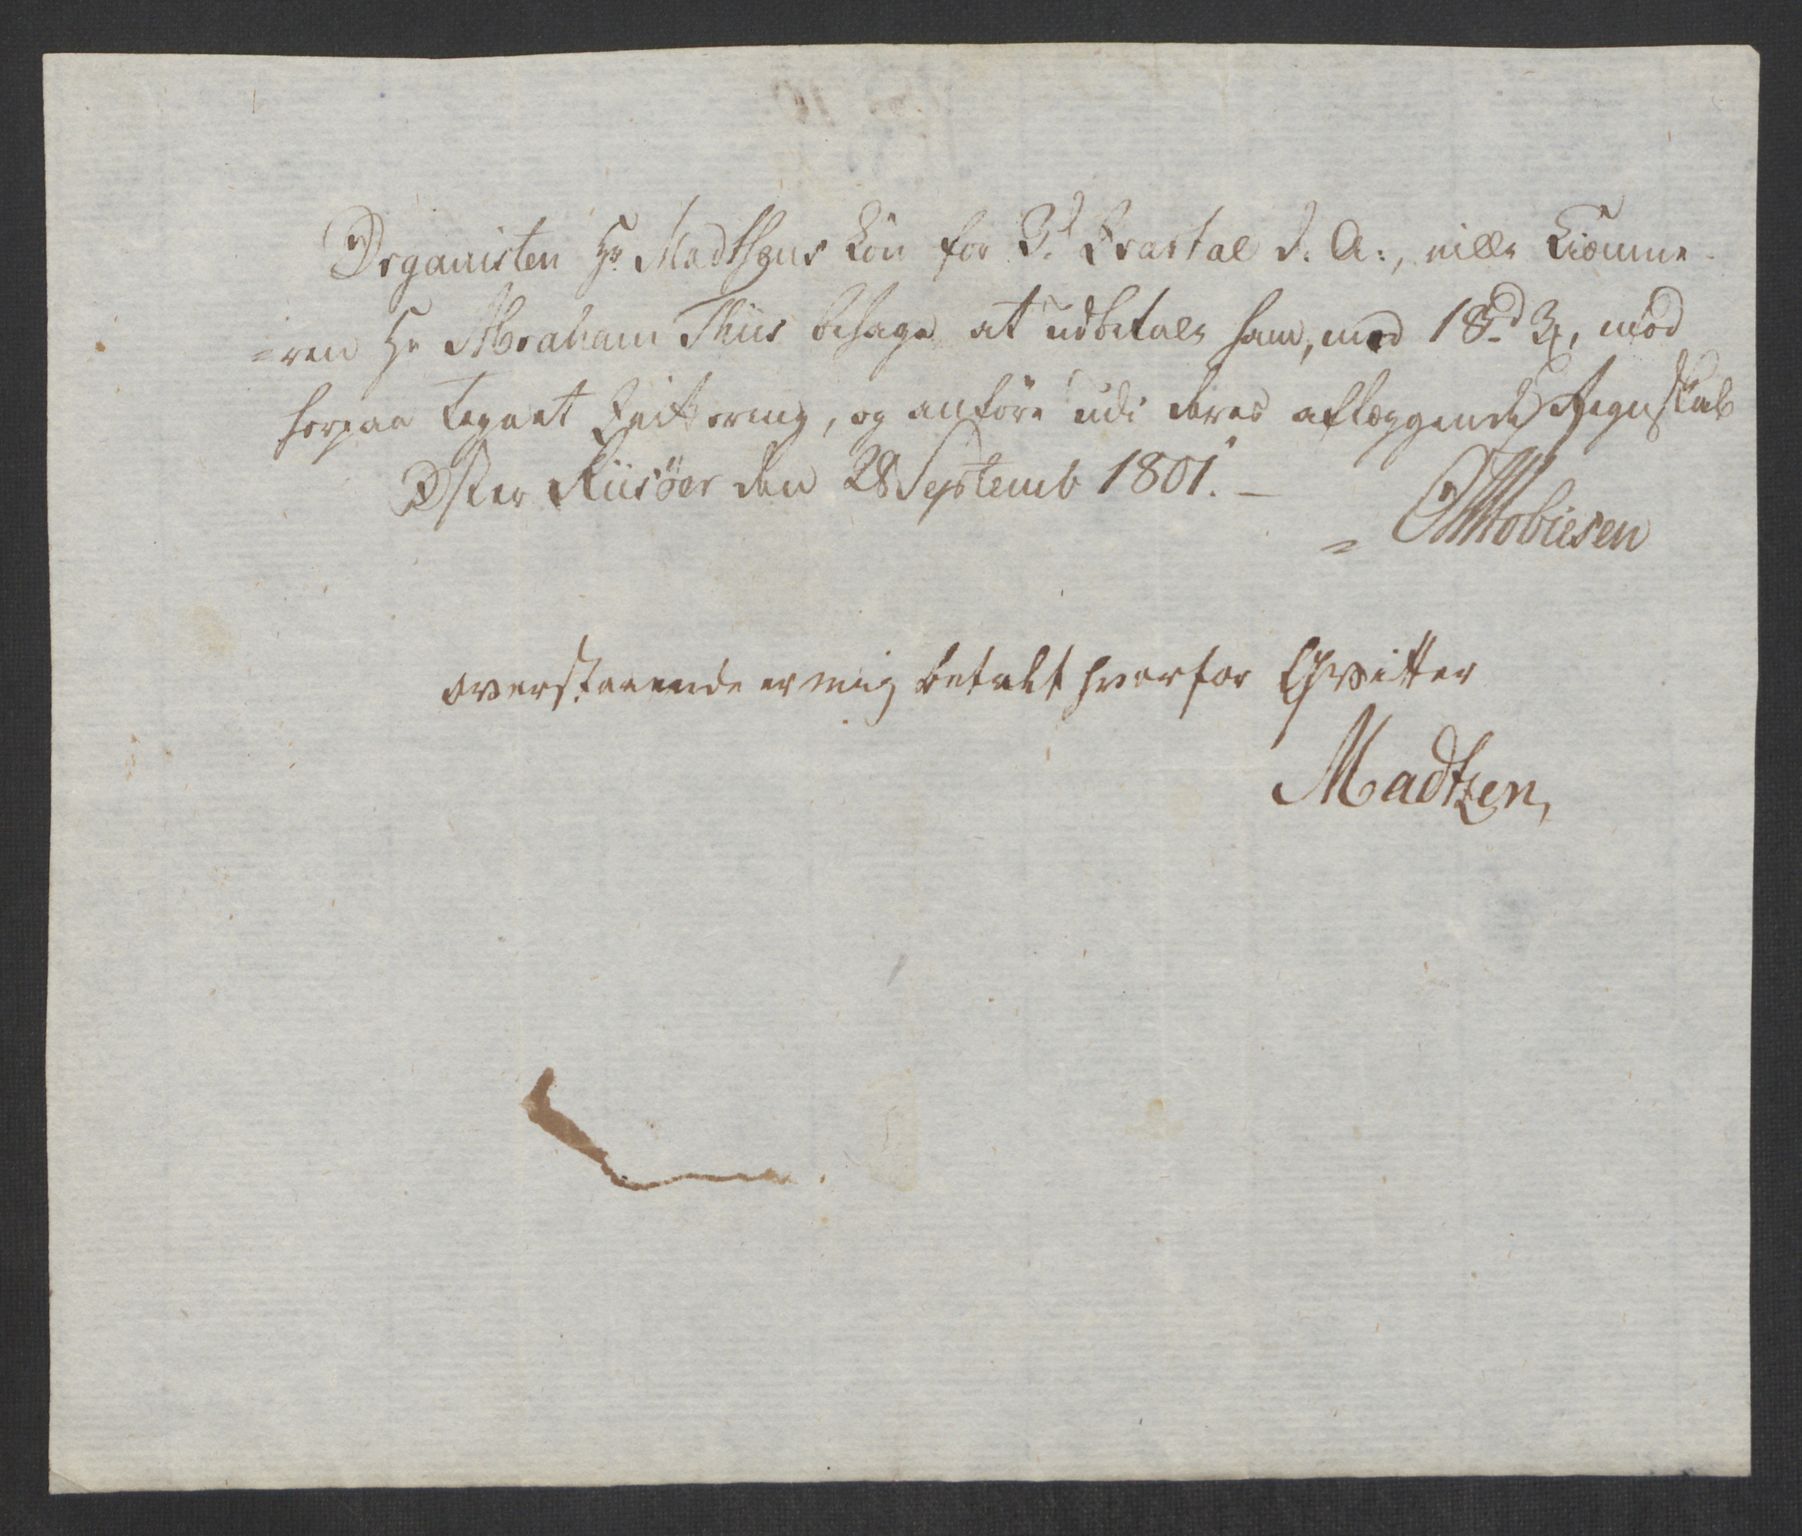 Organisten Hr Madtsens Lön for 3d Qvartal d: A:, ville Kiæmne-
=ren Hr Abraham Thiis behage at udbetale ham, med 18 rd, mod
herpaa tegnet Qvittering, og anföre udi deres aflæggende Regnskab
Öster Riisöer den 28 Septemb 1801. —
Tobiesen
overstaaende er mig betalt hvorfor Qvitter
Madtzen,